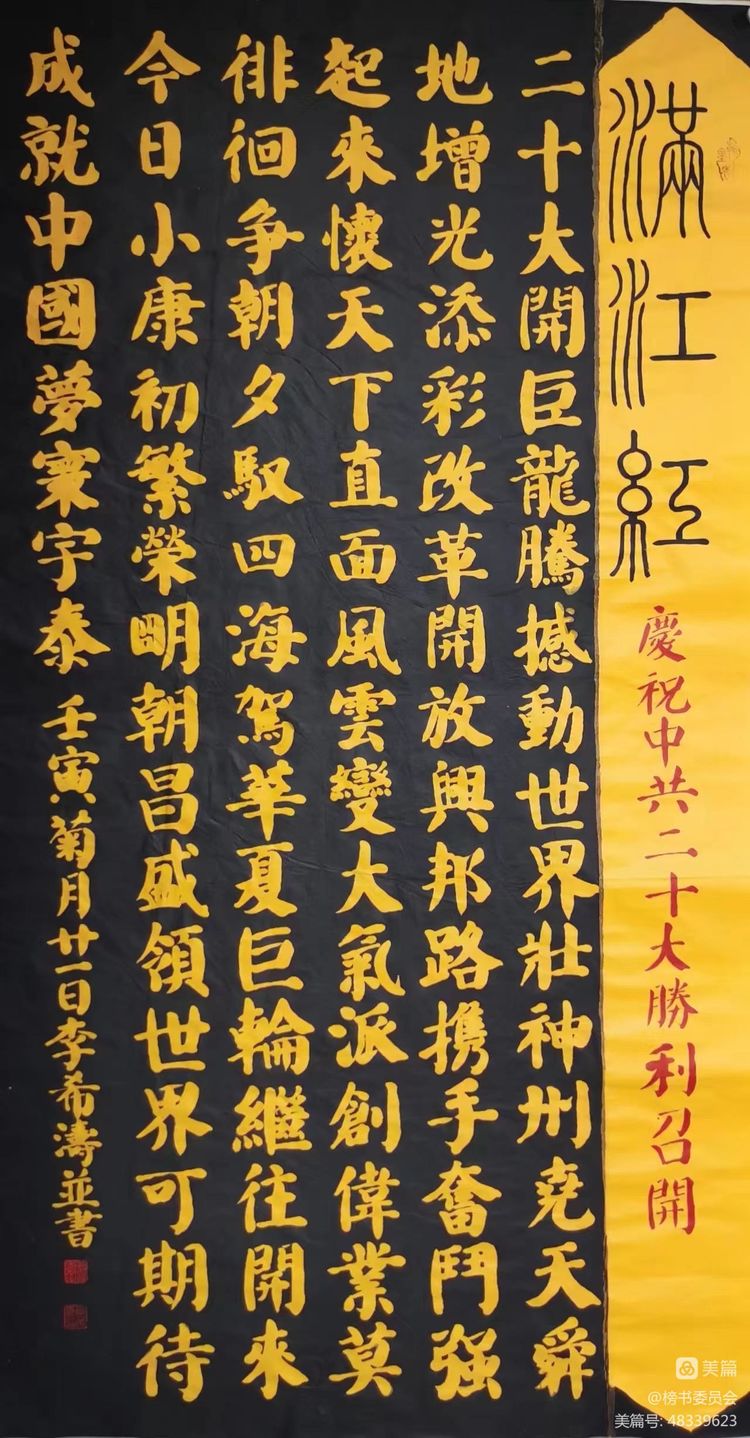 滿江紅
慶祝中共二十大勝利召開
二十大開巨龍騰撼動世界壯神州堯天舜
地增光添彩改革開放興邦路携手奮鬥强
起來懷天下直面風雲變大氣派創偉業莫
徘徊争朝夕馭四海駕華夏巨輪繼往開來
今日小康初繁榮明朝昌盛領世界可期待
成就中國夢寰宇泰
壬寅菊月廿一日李希濤並書
美篇
@榜书委员会
美篇号: 48339623